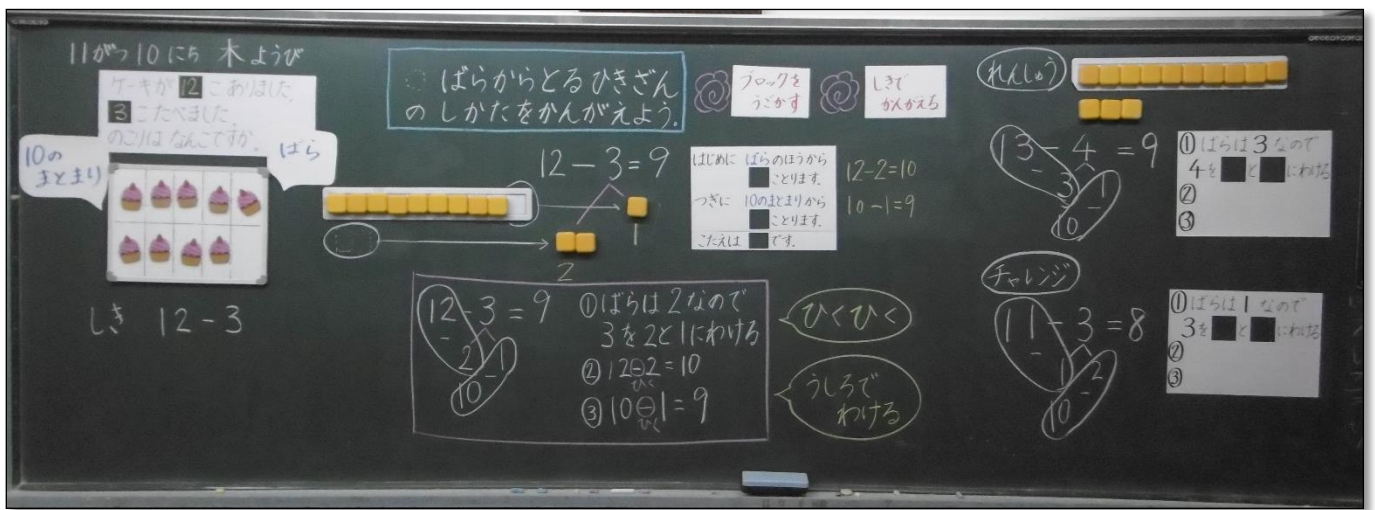 11がつ10にち 木ようび
ケーキが 12 こ ありました。
3 こ たべました。
のこりは なんこですか。
10の
まとまり
ばら
しき 12-3
ばらからとるひきざん
のしかたをかんがえよう。
ブロックを
うごかす
しきで
かんがえる
12-3=9
2
1
はじめに ばらのほうから
■ことります。
つぎに 10のまとまりから
■ことります。
こたえは■です。
12-2=10
10-1=9
12-3=9
- 2 1
10 -
①ばらは2なので
3を2と1にわける
②12-2=10
ひく
③10-1=9
ひく
ひくひく
うしろで
わける
れんしゅう
13-4=9
- 3 1
10 -
①ばらは3なので
4を■と■にわける
②
③
チャレンジ
11-3=8
- 1 2
10 -
①ばらは1なので
3を■と■にわける
②
③